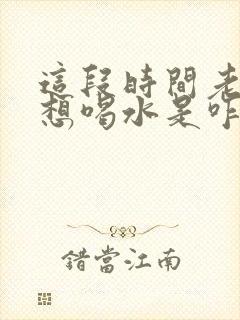 這段時間老
想喝水是咋
錯當江南